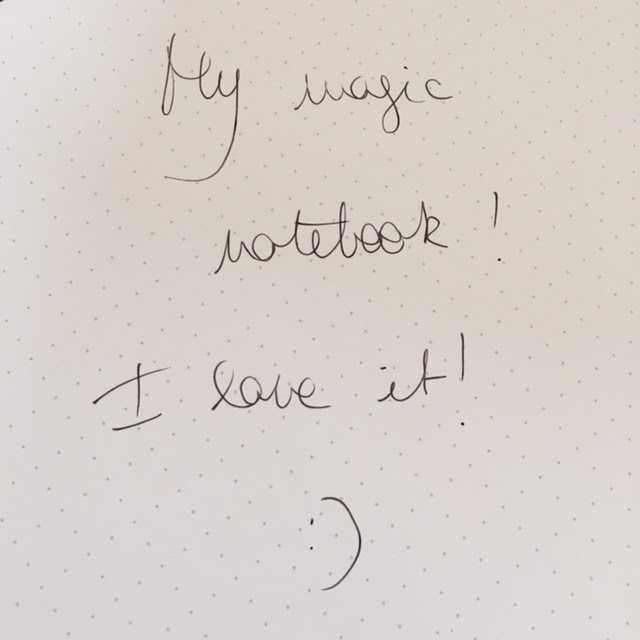 My magic
notebook !
I love it!
:)